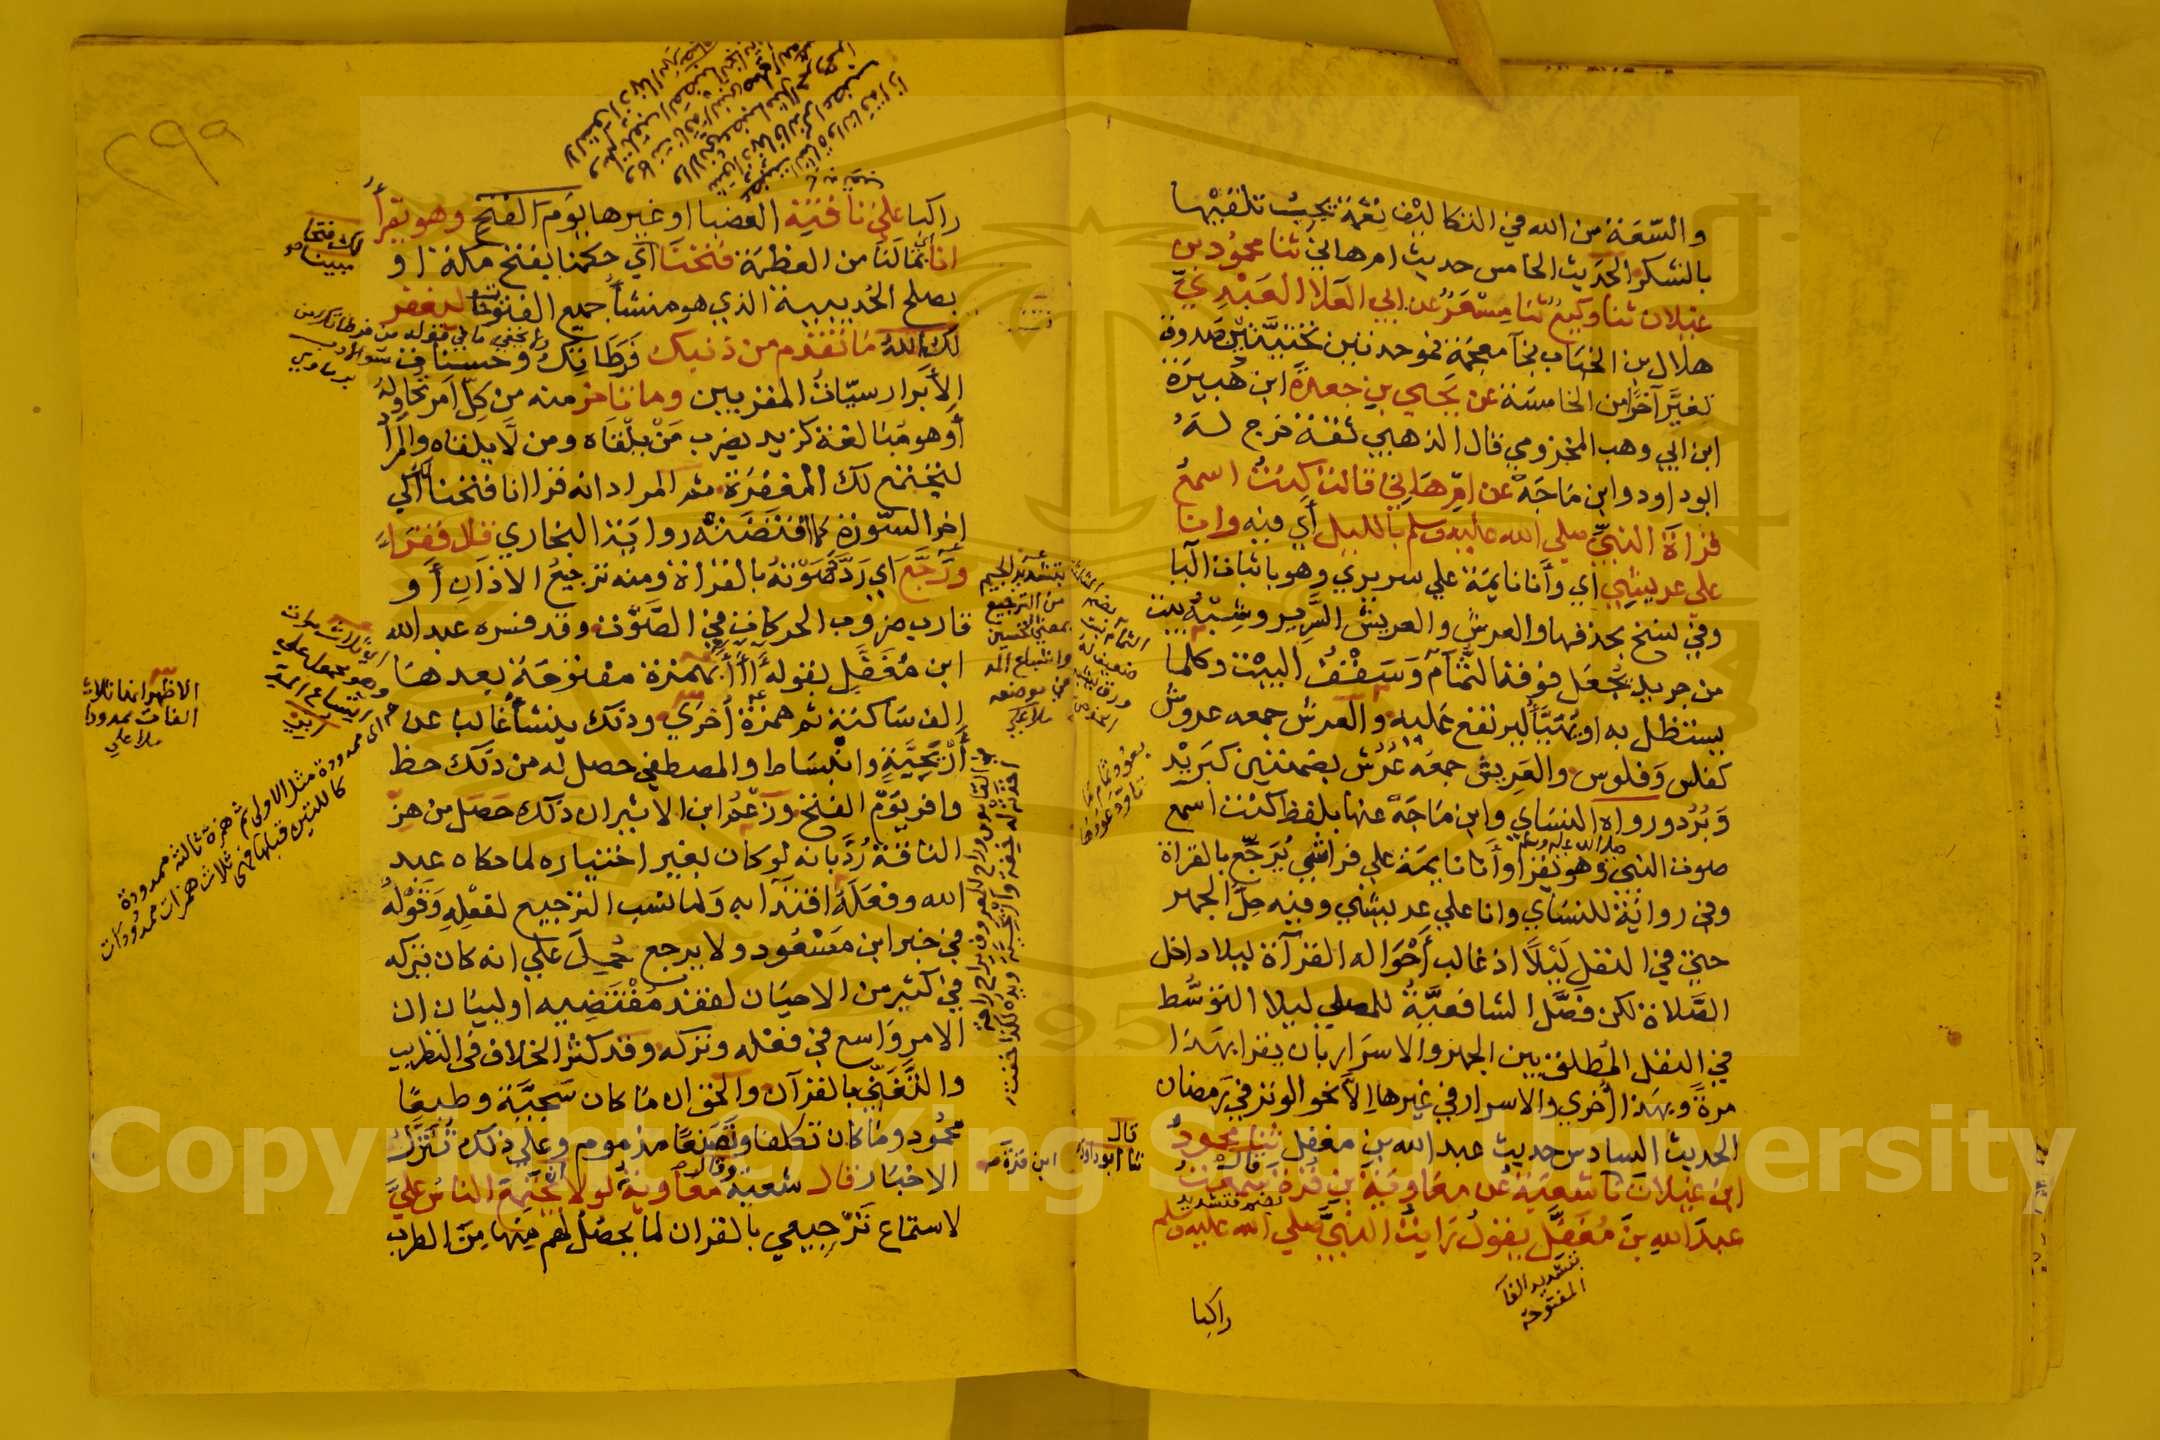 والسَّعَة من الله في التكاليف نعمة يجب تلقيها
بالشكر الحديث الخامس حديث ام هاني ثنا محمود بن
غيلان ثنا وكيع ثنا مسعر عن ابي العلا العبدي
هلال بن الخباب بخآ معجمة فموحدتين صدوق
تغير آخرا من الخامسة عن يحيي بن جعدة ابن هبيرة
ابن ابي وهب المخزومي قال الذهبي ثقة خرج له
ابو داود وابن ماجة عن ام هاني قالت كنت اسمع
قراة النبي صلي الله عليه وسلم بالليل أي فيه وانا
علي عريشي اي وأنا نايمة علي سريري وهو باثبات اليا
وفي نسخ بحذفها والعرش والعريش السرير وشبه بيت
من جريد يجعل فوقه الثمام وسقف البيت وكلما
يستظل به او يهيأ ليرتفع عليه والعرش جمعه عروش
كفلس وفلوس والعريش جمعه عرش بضمتين كبريد
وبرد ورواه النساي وابن ماجة عنها بلفظ كنت اسمع
صوت النبي صلي الله عليه وسلم وهو يقرا وأنا نايمة علي فراشي يرجع بالقراة
وفي رواية للنساي وانا علي عريشي وفيه حل الجهر
حتي في النفل ليلا اذ غالب أحواله القرآة ليلا داخل
الصلاة لكن فضل الشافعية للمصلي ليلا التوسط
في النفل المطلق بين الجهر والاسرار بان يقرا بهذا
مرة وبهذا أخري والاسرار في غيرها إلا نحو الوتر في رمضان
الحديث السادس حديث عبد الله بن مغفل ثنا محمود
ابن غيلان ثنا شعبة عن معاوية بن قرة قال سمعت
عبد الله بن مغفل يقول رايت النبي صلي الله عليه وسلم
بتشديد الفآ
المفتوحة
راكبا
قال
ثنا ابو داود
ابن قرة
٢٩٩
راكبا علي ناقته العضبا او غيرها يوم الفتح وهو يقرأ
انا بما لنا من العظمة فتحنا اي حكمنا بفتح مكة او
لك فتحا
مبينا
بصلح الحديبية الذي هو منشأ جميع الفتوحات ليغفر
لك الله ما تقدم من ذنبك فرطاتك وحسنات
الأبرار سيآت المقربين وما تاخر منه من كل أمر تحاوله
أو هو مبالغة كزيد يضرب من يلقاه ومن لا يلقاه والمراد
لتجتمع لك المغفرة ثم المراد انه قرا انا فتحنا لك الي
اخر السورة كما اقتضته رواية البخاري قال فقرا
ورجع اي ردد صوته بالقراة ومنه ترجيع الاذان أو
قارب ضروب الحركات في الصوت وقد فسره عبد الله
ابن مغفل بقوله أأأ بهمزة مفتوحة بعدها
الف ساكنة ثم همزة أخري وذلك ينشأ غالبا عن
أريحية وانبساط والمصطفي حصل له من ذلك حظ
وافر يوم الفتح وزعم ابن الاثير ان ذلك حصل من هز
الناقة رد بانه لو كان بغير اختياره لما حكاه عبد
الله وفعله اقتدآ به ولما نسب الترجيع لفعله وقوله
في خبر ابن مسعود ولا يرجع حمل علي انه كان يتركه
في كثير من الاحيان لفقد مقتضيه او لبيان ان
الامر واسع في فعله وتركه وقد كثر الخلاف في التطريب
والتغني بالقرآن والحق ان ما كان سجية وطبعا
محمود وما كان تكلفا وتصنعا مذموم وعلي ذلك تنزل
الاخبار قال شعبة وقال معاوية لولا ان يجتمع الناس علي
لاستماع ترجيعي بالقران لما يحصل لهم منها من الطرب
الاظهر انها ثلاث
الفات ممدودات
ملا علي
بتشديد الجيم
من الترجيع
بمعني التحسين
واشباع المد
في موضعه
ملا علي
Copyright © King Saud University
1957